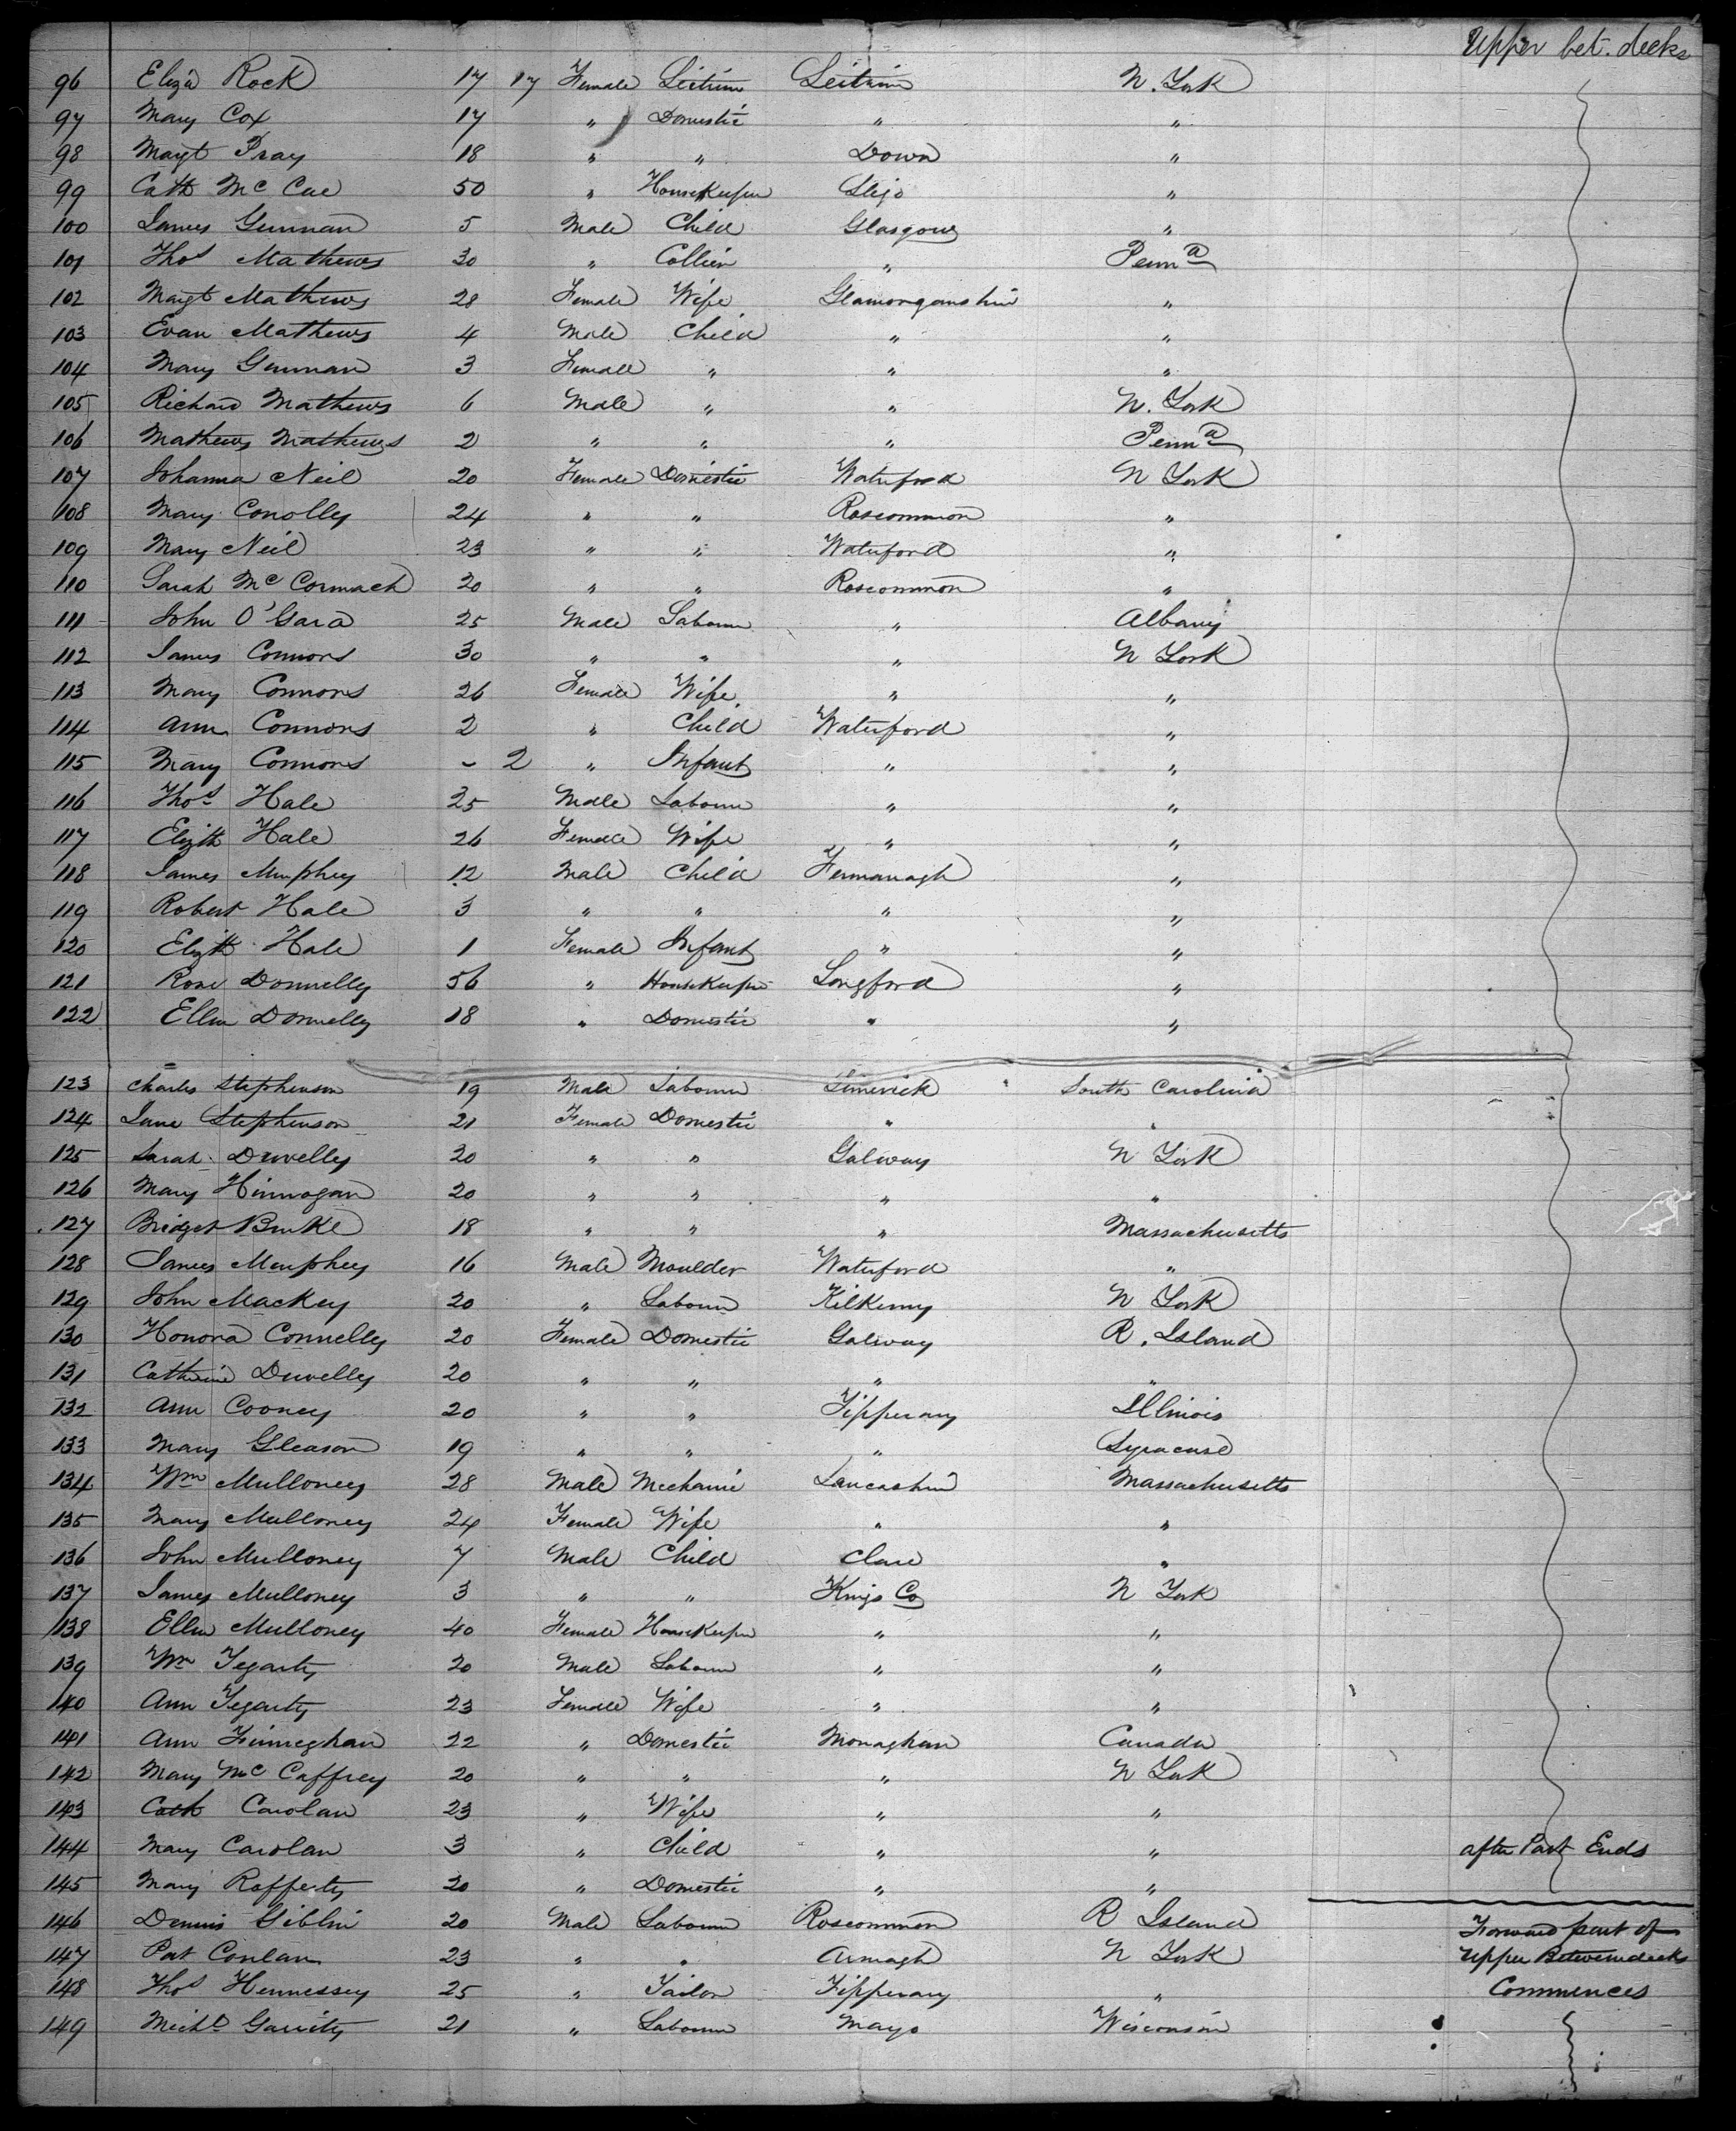 Upper bet. decks
96 Eliza Rock 17 17 Female Leitrim Leitrim N. York
97 Mary Cox 17 " Domestic " "
98 Magt Pray 18 " " Down "
99 Cath Mc Cue 50 " Housekeeper Sligo "
100 James Gunnan 5 Male Child Glasgow "
101 Thos Mathews 30 " Collier " Penna
102 Magt Mathews 28 Female Wife Glamorganshire "
103 Evan Mathews 4 Male Child " "
104 Mary Gunnan 3 Female " " "
105 Richard Mathews 6 Male " " N. York
106 Mathews Mathews 2 " " " Penna
107 Johanna Neil 20 Female Domestic Waterford N York
108 Mary Conolly 24 " " Roscommon "
109 Mary Neil 23 " " Waterford "
110 Sarah Mc Cormack 20 " " Roscommon "
111 John O'Gara 25 Male Labourer " Albany
112 James Connors 30 " " " N York
113 Mary Connors 26 Female Wife " "
114 Ann Connors 2 " Child Waterford "
115 Mary Connors - 2 " Infant " "
116 Thos Hale 25 Male Labourer " "
117 Elizth Hale 26 Female Wife " "
118 James Murphey 12 Male Child Fermanagh "
119 Robert Hale 3 " " " "
120 Elizth Hale 1 Female Infant " "
121 Rose Donnelly 56 " Housekeeper Longford "
122 Ellen Donnelly 18 " Domestic " "
123 Charles Stephenson 19 Male Labourer Limerick South Carolina
124 Jane Stephenson 21 Female Domestic " "
125 Sarah Druvelly 20 " " Galway N York
126 Mary Hinnogan 20 " " " "
127 Bridget Burke 18 " " " Massachusetts
128 James Murphey 16 Male Moulder Waterford "
129 John Mackey 20 " Labourer Kilkenny N York
130 Honora Connelly 20 Female Domestic Galway R. Island
131 Catherine Druvelly 20 " " " "
132 Ann Cooney 20 " " Tipperary Illinois
133 Mary Gleason 19 " " " Syracuse
134 Wm Mulloney 28 Male Mechanic Lancashire Massachusetts
135 Mary Mulloney 24 Female Wife " "
136 John Mulloney 7 Male Child Clare "
137 James Mulloney 3 " " Kings Co N York
138 Ellen Mulloney 40 Female Housekeeper " "
139 Wm Tegarty 20 Male Labourer " "
140 Ann Tegarty 23 Female Wife " "
141 Ann Finneghan 22 " Domestic Monaghan Canada
142 Mary Mc Caffrey 20 " " " N York
143 Cath Carolan 23 " Wife " "
144 Mary Carolan 3 " Child " " after Part Ends
145 Mary Rafferty 20 " Domestic " "
146 Dennis Giblin 20 Male Labourer Roscommon R Island Forward part of
147 Pat Conlan 23 " " Armagh N York Upper Betweendecks
148 Thos Hennessey 25 " Tailor Tipperary " Commences
149 Michl Garrity 21 " Labourer Mayo Wisconsin